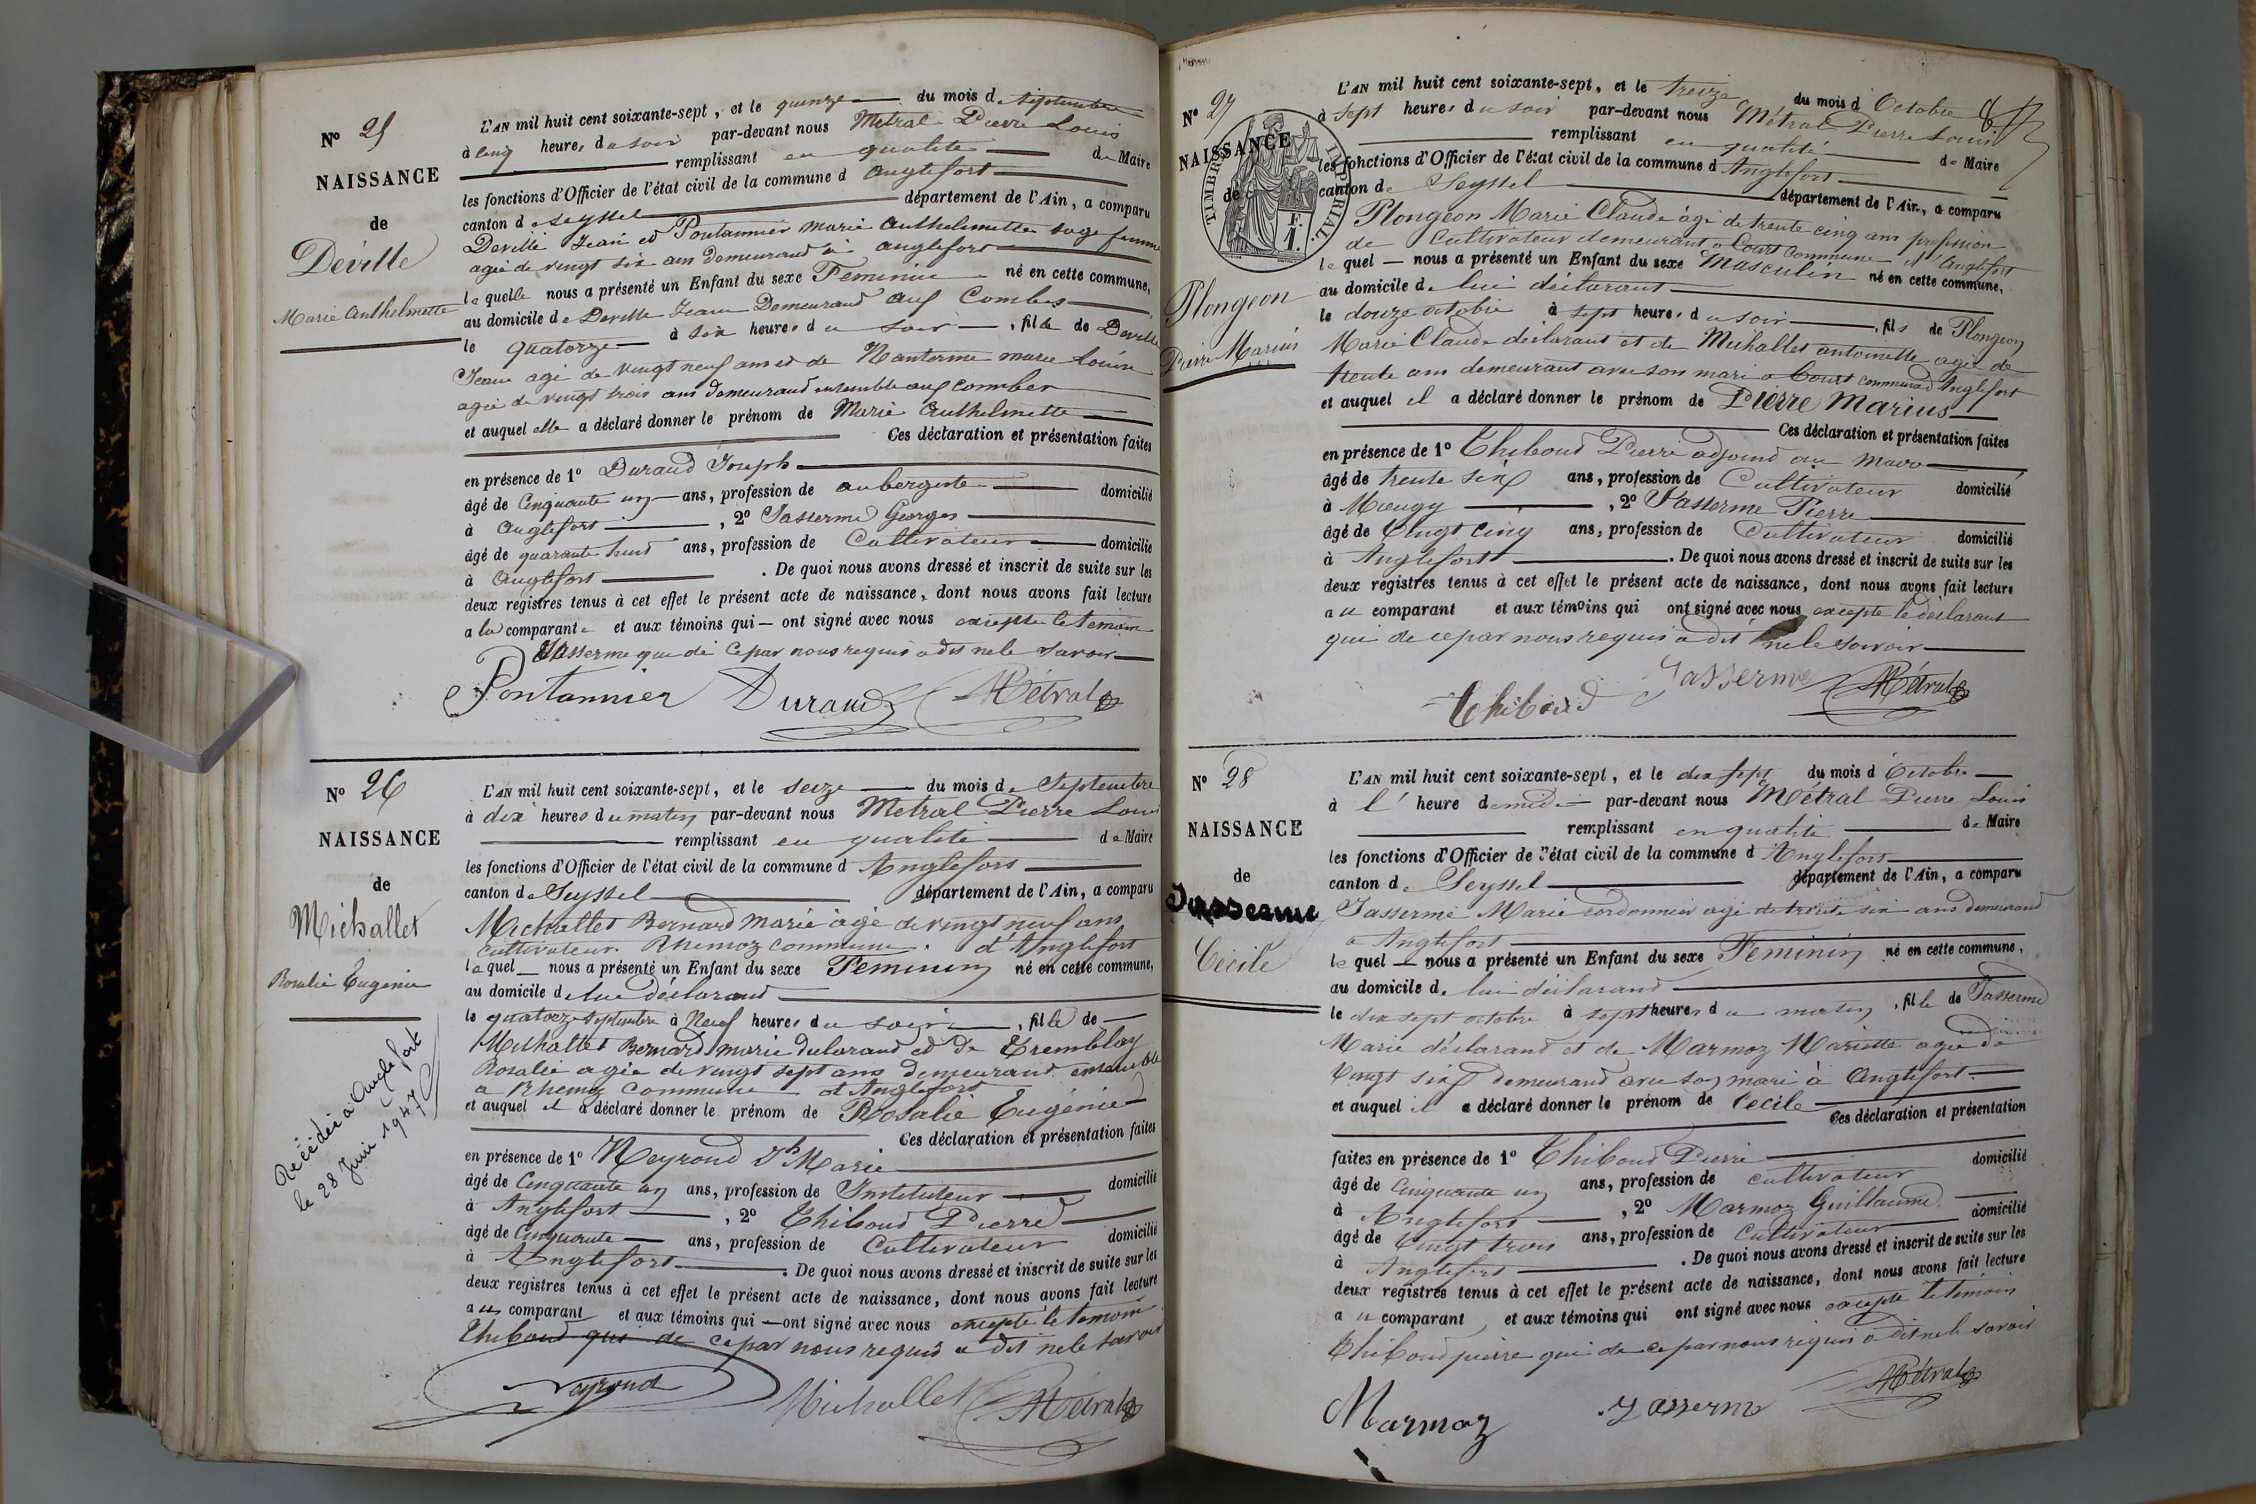 N° 25
NAISSANCE
de
Déville
Marie Anthelmette
L'AN mil huit cent soixante-sept, et le quinze du mois de septembre
à cinq heures du soir par-devant nous Métral Pierre Louis
remplissant en qualité de Maire
les fonctions d'Officier de l'état civil de la commune d Anglefort
canton de Seyssel département de l'Ain, a comparu
Deville Jean et Pontannier Marie Anthelmette sage femme
agée de vingt six ans demeurand à anglefort
laquelle nous a présenté un Enfant du sexe Feminin né en cette commune,
au domicile de Deville Jean Demeurand aux Combes
le quatorze à six heures du soir, fille de Deville
Jean agé de vingt neuf ans et de Nanterme marie Louise
agée de vingt trois ans demeurand ensemble aux combes
et auquel elle a déclaré donner le prénom de Marie Anthelmette
Ces déclaration et présentation faites
en présence de 1° Durand Joseph
âgé de Cinquante un ans, profession de aubergiste domicilié
à Anglefort, 2° Jasserme Georges
âgé de quarante huit ans, profession de Cultivateur domicilié
à Anglefort. De quoi nous avons dressé et inscrit de suite sur les
deux registres tenus à cet effet le présent acte de naissance, dont nous avons fait lecture
a la comparante et aux témoins qui — ont signé avec nous excepté le temoin
Jasserme qui de ce par nous requis a dit ne le savoir
Pontannier Durand Métral
N° 26
NAISSANCE
de
Michallet
Rosalie Eugénie
Décédée à Anglefort
le 28 Juin 1947
L'AN mil huit cent soixante-sept, et le seize du mois de Septembre
à dix heures du matin par-devant nous Métral Pierre Louis
remplissant en qualité de Maire
les fonctions d'Officier de l'état civil de la commune d Anglefort
canton de Seyssel département de l'Ain, a comparu
Michallet Bernard Marie agé de vingt neuf ans
cultivateur Rhemoz commune d'Anglefort
lequel — nous a présenté un Enfant du sexe Feminin né en cette commune,
au domicile de lui déclarand
le quatorze septembre à Neuf heures du soir, fille de
Michallet Bernard marie déclarand et de Tremblay
Rosalie agée de vingt sept ans demeurand ensemble
a Rhemoz Commune d'Anglefort
et auquel il a déclaré donner le prénom de Rosalie Eugénie
Ces déclaration et présentation faites
en présence de 1° Neyroud Jh Marie
âgé de Cinquante un ans, profession de Instituteur domicilié
à Anglefort, 2° Thiboud Pierre
âgé de Cinquante ans, profession de Cultivateur domicilié
à Anglefort. De quoi nous avons dressé et inscrit de suite sur les
deux registres tenus à cet effet le présent acte de naissance, dont nous avons fait lecture
au comparant et aux témoins qui — ont signé avec nous excepté le temoin
Thiboud qui de ce par nous requis a dit ne le savoir
Neyroud Michallet Métral
N° 27
NAISSANCE
de
TIMBRE IMPERIAL
F.
1.
Plongeon
Pierre Marius
L'AN mil huit cent soixante-sept, et le treize du mois d Octobre
à sept heures du soir par-devant nous Métral Pierre Louis
remplissant en qualité de Maire
les fonctions d'Officier de l'état civil de la commune d Anglefort
canton de Seyssel département de l'Ain, a comparu
Plongeon Marie Claude agé de trente cinq ans profession
de Cultivateur demeurant a Court Commune d'Anglefort
lequel — nous a présenté un Enfant du sexe Masculin né en cette commune,
au domicile de lui déclarant
le douze octobre à sept heures du soir, fils de Plongeon
Marie Claude déclarant et de Michallet antoinette agée de
trente ans demeurant avec son mari a Court commune d'Anglefort
et auquel il a déclaré donner le prénom de Pierre Marius
Ces déclaration et présentation faites
en présence de 1° Thiboud Pierre adjoind au Maire
âgé de trente six ans, profession de Cultivateur domicilié
à Mœugy, 2° Jasserme Pierre
âgé de Vingt cinq ans, profession de Cultivateur domicilié
à Anglefort. De quoi nous avons dressé et inscrit de suite sur les
deux registres tenus à cet effet le présent acte de naissance, dont nous avons fait lecture
au comparant et aux témoins qui ont signé avec nous excepté le déclarant
qui de ce par nous requis a dit ne le savoir
Thiboud Jasserme Métral
N° 28
NAISSANCE
de
Jasserme
Cécile
L'AN mil huit cent soixante-sept, et le dix sept du mois d Octobre
à l' heure de midi par-devant nous Métral Pierre Louis
remplissant en qualité de Maire
les fonctions d'Officier de l'état civil de la commune d Anglefort
canton de Seyssel département de l'Ain, a comparu
Jasserme Marie cordonnier agé de trente six ans demeurand
a Anglefort
lequel — nous a présenté un Enfant du sexe Feminin né en cette commune,
au domicile de lui déclarand
le dix sept octobre à sept heures du matin, fille de Jasserme
Marie déclarand et de Marmoz Mariette agée de
Vingt six demeurand avec son mari à Anglefort
et auquel il a déclaré donner le prénom de Cécile
Ces déclaration et présentation
faites en présence de 1° Thiboud Pierre
âgé de Cinquante un ans, profession de cultivateur domicilié
à Anglefort, 2° Marmoz Guillaume
âgé de Vingt trois ans, profession de Cultivateur domicilié
à Anglefort. De quoi nous avons dressé et inscrit de suite sur les
deux registres tenus à cet effet le présent acte de naissance, dont nous avons fait lecture
au comparant et aux témoins qui ont signé avec nous excepté le témoin
Thiboud pierre qui de ce par nous requis a dit ne le savoir
Marmoz Jasserme Métral